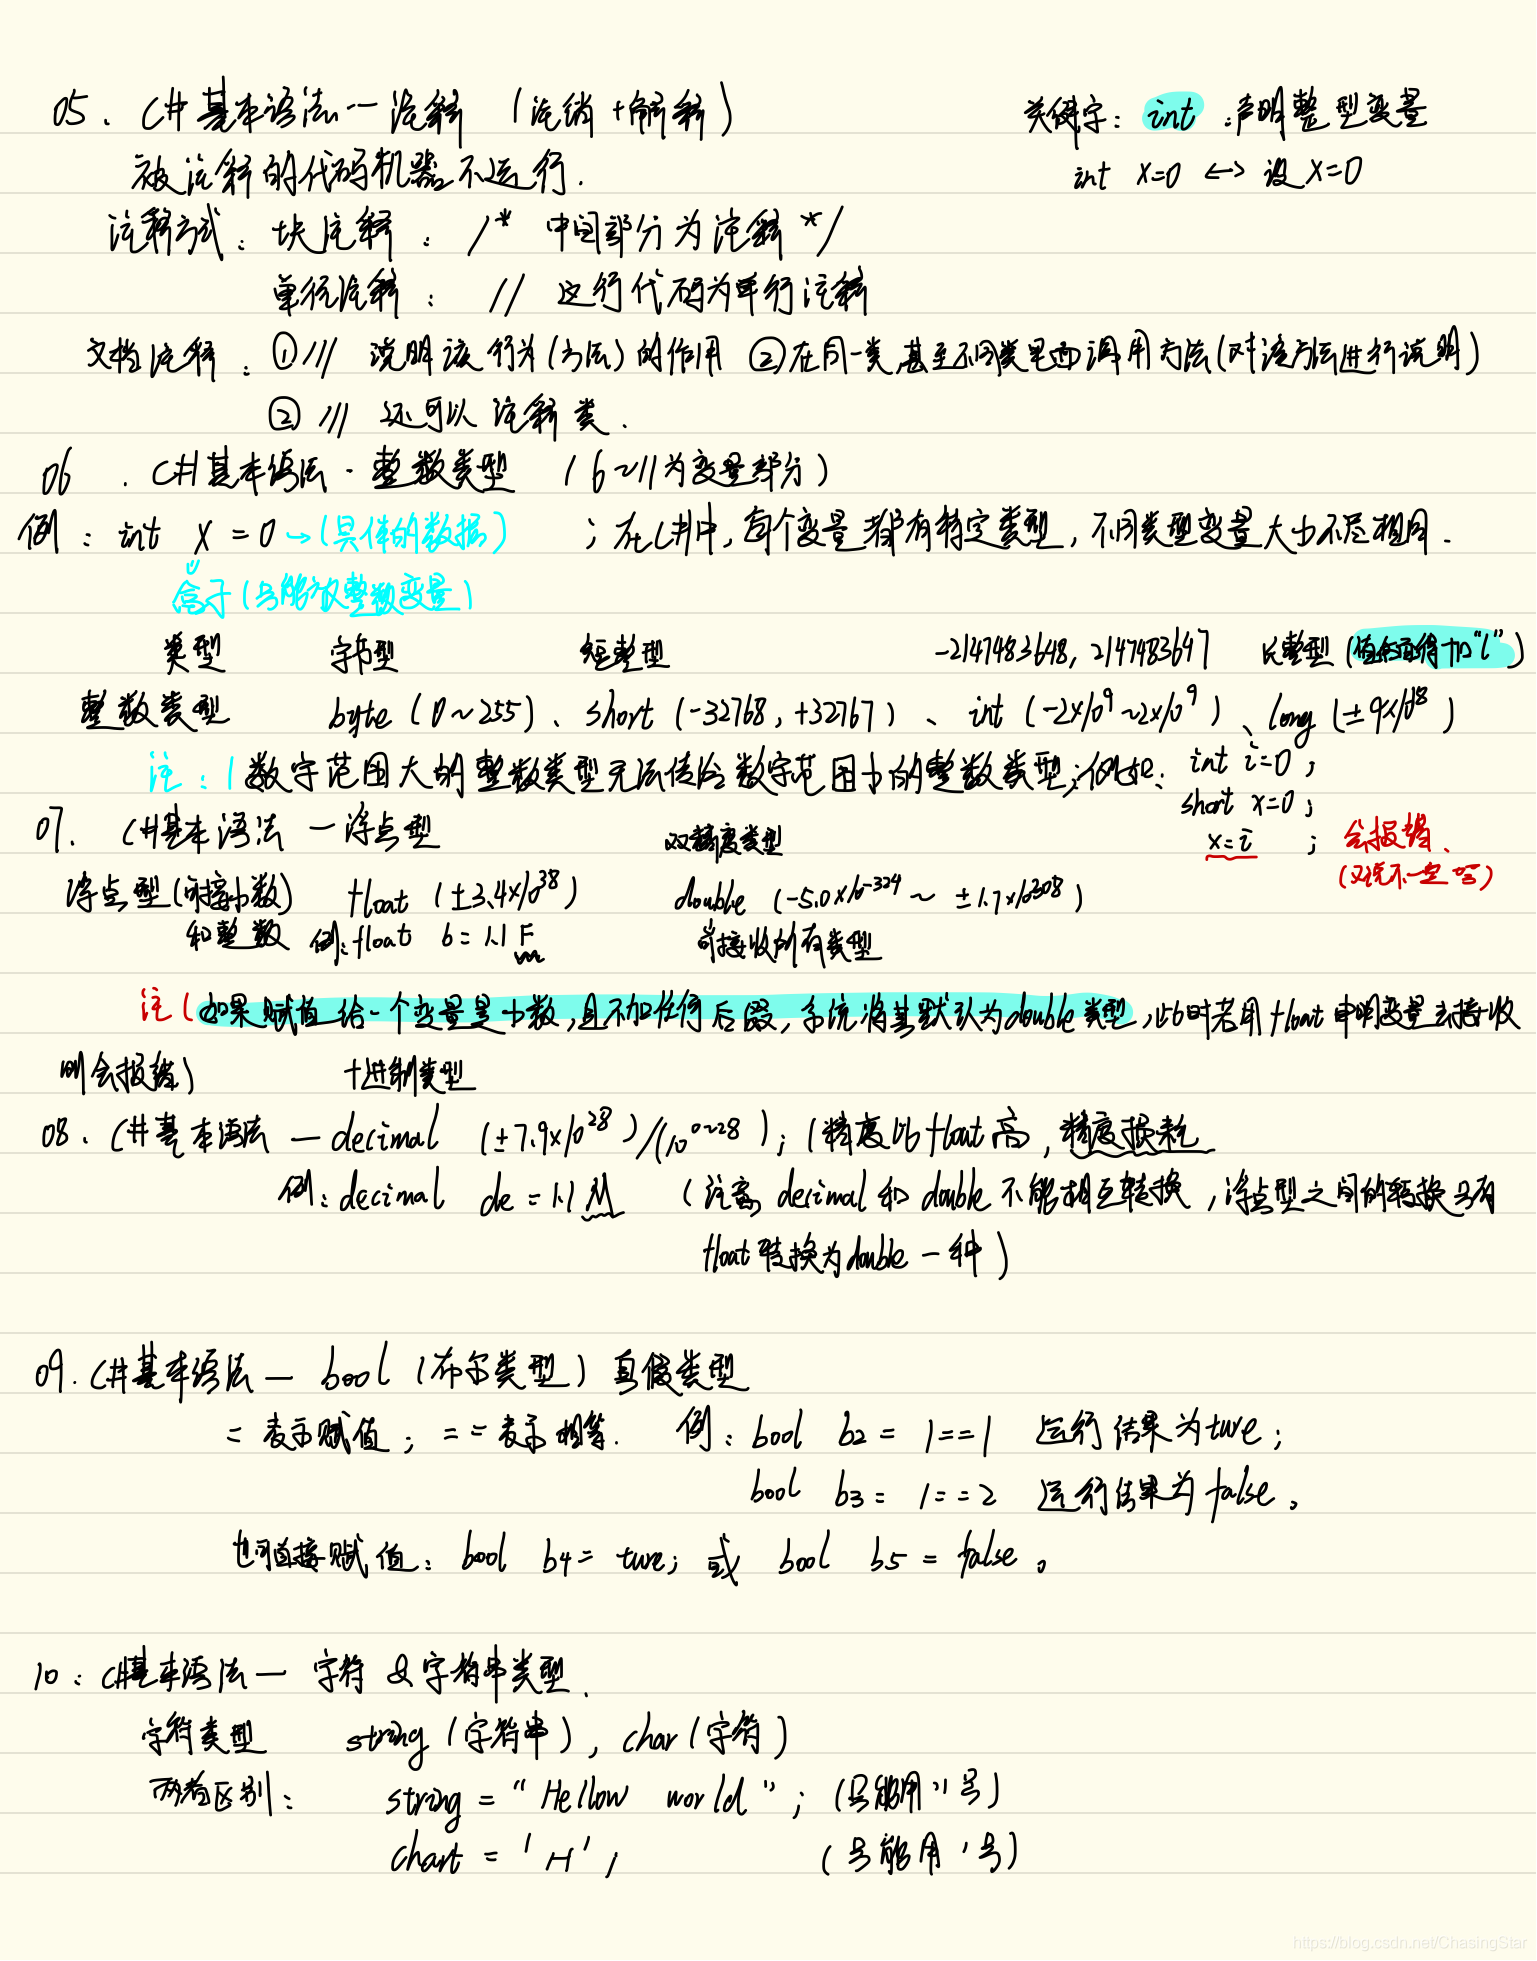 05. C#基本语法--注释 (注销+解释)
关键字: int :声明整型变量
int x=0 <-> 设X=0
被注释的代码机器不运行.
注释方式: 块注释: /* 中间部分为注释 */
单行注释: // 这行代码为单行注释
文档注释: ① /// 说明该行为(方法)的作用 ②在同一类,甚至不同类里面调用方法(对该方法进行说明)
② /// 还可以注释类.
06 . C#基本语法 - 整数类型 (6~11为变量部分)
例: int x = 0 →(具体的数据) ; 在C#中,每个变量都有特定类型,不同类型变量大小不尽相同.
盒子(只能放整数变量)
类型 字节型 短整型 -2147483648, 2147483647 长整型 (值后面得加"l")
整数类型 byte (0~255)、short (-32768, +32767)、int (-2×10^9~2×10^9)、long (±9×10^18)
注: 1 数字范围大的整数类型无法传给数字范围小的整数类型;例如: int i=0;
short x=0;
x=i ; 会报错.
(又说不一定哈)
07. C#基本语法 一浮点型 双精度类型
浮点型(可接小数) float (±3.4×10^38) double (-5.0×10^-324 ~ ±1.7×10^308)
和整数 例:float b=1.1F 可接收所有类型
注(如果赋值给一个变量是小数,且不加任何后缀,系统将其默认为double类型,此时若用float申明变量去接收
则会报错) 十进制类型
08. C#基本语法 — decimal (±7.9×10^28)/(10^0~28); (精度比float高,精度损耗
例: decimal de = 1.1M (注意 decimal和double不能相互转换,浮点型之间的转换只有
float转换为double一种)
09. C#基本语法 — bool (布尔类型) 真假类型
= 表示赋值; == 表示相等. 例: bool b2 = 1==1 运行结果为ture;
bool b3 = 1==2 运行结果为false。
也可直接赋值: bool b4 = ture; 或 bool b5 = false。
10: C#基本语法一 字符 & 字符串类型.
字符类型 string (字符串), char (字符)
两者区别: string = "Hellow world"; (只能用"号)
chart = 'H'; (只能用'号)
https://blog.csdn.net/ChasingStar